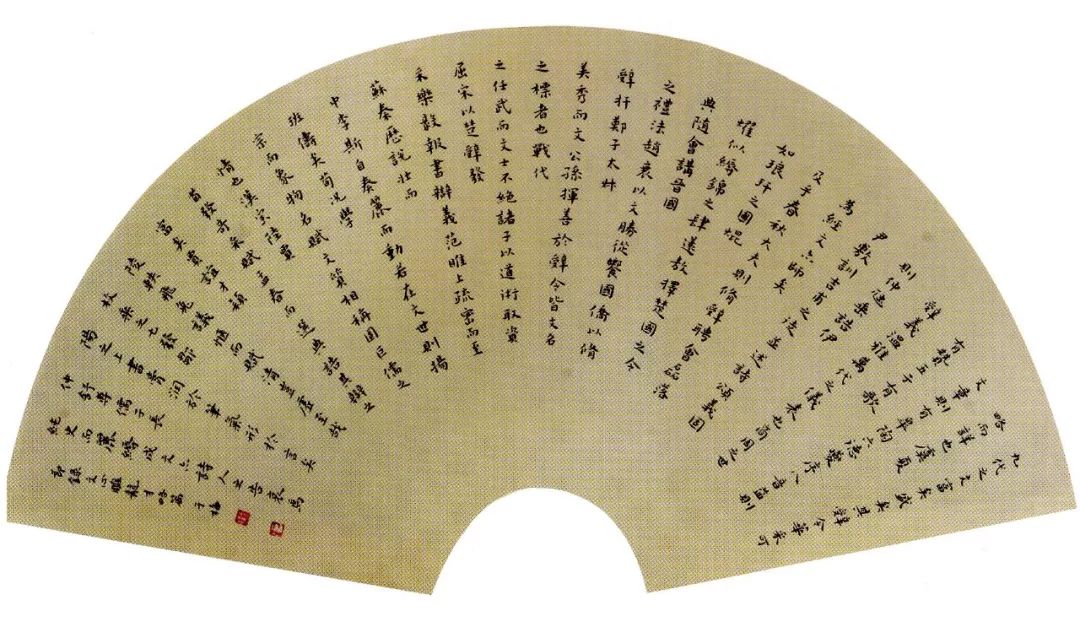 九代之文富矣盛矣其辭令華采可
略而詳也虞夏
文章則有皋陶六德夔序八音益則
有贊五子有歌
辭義溫雅萬代之儀表也商周之世
則仲虺垂誥伊
尹敷訓吉甫之徒並述詩頌義固
為經文亦師矣
及乎春秋大夫則脩辭聘會磊落
如琅玕之圃焜
耀似縟錦之肆薳敖擇楚國之令
典隨會講晉國
之禮法趙衰以文勝從饗國僑以脩
辭扞鄭子太叔
美秀而文公孫揮善於辭令皆文名
之標者也戰代
之任武而文士不絕諸子以道術取資
屈宋以楚辭發
采樂毅報書辯義范雎上疏密而至
蘇秦歷說壯而
中李斯自奏麗而動若在文世則揚
班儔矣荀況學
宗而象物名賦文質相稱固巨儒之
情也漢室陸賈
首發奇采賦孟春而選典誥其辯之
富矣賈誼才穎
陵軼飛兔議愜而賦清豈虛至哉
枚乘之七發鄒
陽之上書膏潤於筆氣形於言矣
仲舒專儒子長
純史而麗縟成文亦詩人之告哀焉
節錄文心雕龍才略篇